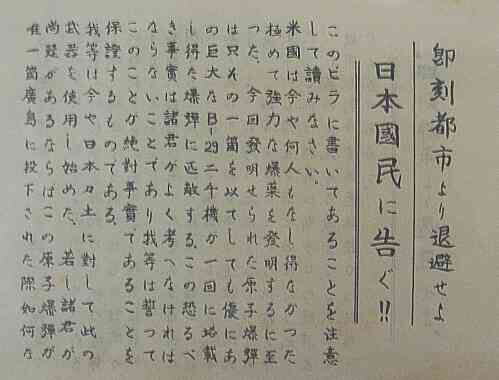 即刻都市より退避せよ
日本國民に告ぐ!!
このビラに書いてあることを注意
して讀みなさい。
米國は今や何人もなし得なかつた
極めて強力な爆薬を發明するに至
つた、今回發明せられた原子爆彈
は只その一箇を以てしても優にあ
の巨大なB-29二千機が一回に搭載
し得た爆彈に匹敵する、この恐るべ
き事實は諸君がよく考へなければ
ならないことであり我等は誓つて
このことが絶對事實であることを
保證するものである、
我等は今や日本々土に對して此の
武器を使用し始めた、若し諸君が
尚疑があるならばこの原子爆彈が
唯一箇廣島に投下された際如何な